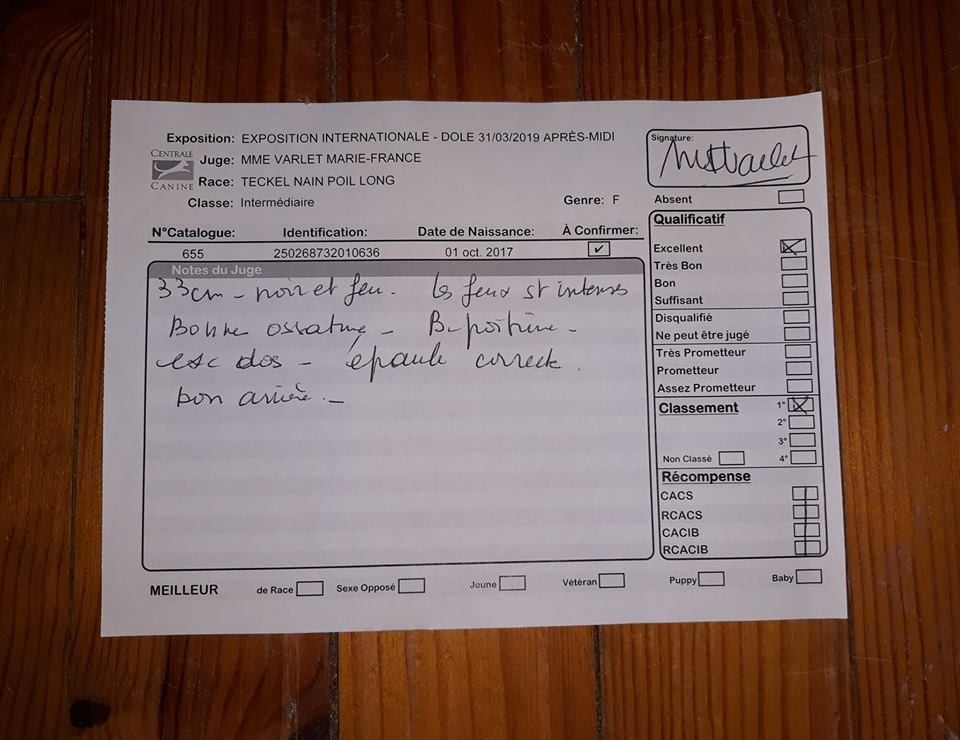 Exposition: EXPOSITION INTERNATIONALE - DOLE 31/03/2019 APRÈS-MIDI
CENTRALE CANINE
Juge: MME VARLET MARIE-FRANCE
Race: TECKEL NAIN POIL LONG
Classe: Intermédiaire Genre: F
Signature:
MFVarlet
Absent
N°Catalogue: Identification: Date de Naissance: À Confirmer:
655 250268732010636 01 oct. 2017 ✓
Notes du Juge
33cm - noir et feu. les feux st intenses
Bonne ossature - B. poitrine -
exc dos - épaule correcte.
bon arrière. -
Qualificatif
Excellent
Très Bon
Bon
Suffisant
Disqualifié
Ne peut être jugé
Très Prometteur
Prometteur
Assez Prometteur
Classement 1°
2°
3°
Non Classé 4°
Récompense
CACS
RCACS
CACIB
RCACIB
MEILLEUR de Race Sexe Opposé Jeune Vétéran Puppy Baby